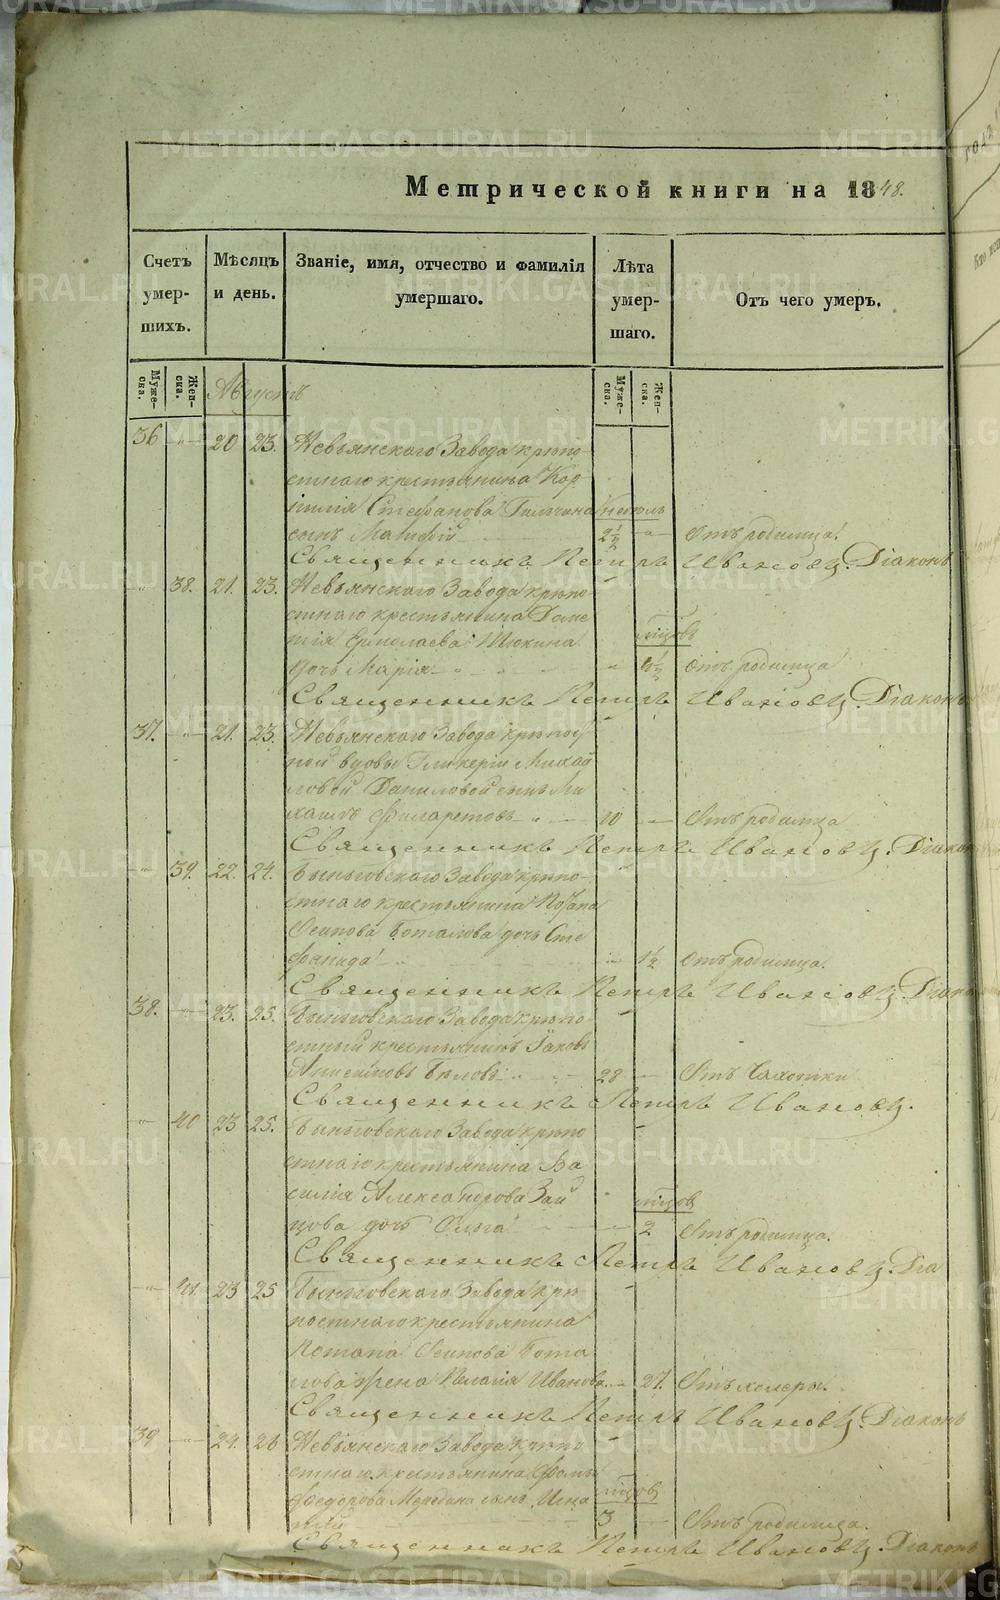 Метрической книги на 1848.
Счетъ умершихъ.
Мѣсяцъ и день.
Званіе, имя, отчество и фамилія умершаго.
Лѣта умершаго.
Отъ чего умеръ.
Мужеска. Женска.
Августъ
Мужеска. Женска.
36 — „ — 20 23. Невьянскаго Завода крѣпо-
стнаго крестьянина Кор-
нилія Стефанова недѣль
сынъ 2½ — „ — Отъ родимца.
Священникъ Петръ Ивановъ. Діаконъ
— „ — 38. 21. 23. Невьянскаго Завода крѣпо-
стнаго крестьянина
Ермолаева мѣсяцовъ
дочь Марія — „ „ Отъ родимца
Священникъ Петръ Ивановъ. Діаконъ
37. — „ — 21. 23. Невьянскаго Завода крѣпост-
ной вдовы Гликеріи Михай-
ловой Даниловой сынъ
Филаретовъ — „ — 10 — Отъ родимца
Священникъ Петръ Ивановъ. Діаконъ
— „ — 39. 22. 24. Быньговскаго Завода крѣпо-
стнаго крестьянина
Осипова Боталова дочь Сте-
фанида „ 1½ Отъ родимца.
Священникъ Петръ Ивановъ. Діаконъ
38. — „ — 23. 25. Быньговскаго Завода крѣпо-
стный крестьянинъ Іаковъ
Бѣловъ „ 28 — Отъ Чахотки
Священникъ Петръ Ивановъ.
— „ — 40 23 25. Быньговскаго Завода крѣпо-
стнаго крестьянина Ва-
силія Александрова Зай- мѣсяцовъ
цова дочь Ольга — 2 Отъ родимца.
Священникъ Петръ Ивановъ. Діа
— „ — 41. 23 25 Быньговскаго Завода крѣ-
постнаго крестьянина
Потапа Осипова Бота-
лова жена Пелагія Иванова — 27. Отъ холеры.
Священникъ Петръ Ивановъ. Діаконъ
39 — „ — 24. 26 Невьянскаго Завода крѣпо-
стнаго крестьянина Фомы
Федорова сынъ Игна- мѣсяцовъ
тій 3 — Отъ родимца.
Священникъ Петръ Ивановъ. Діаконъ
METRIKI.GASO-URAL.RU